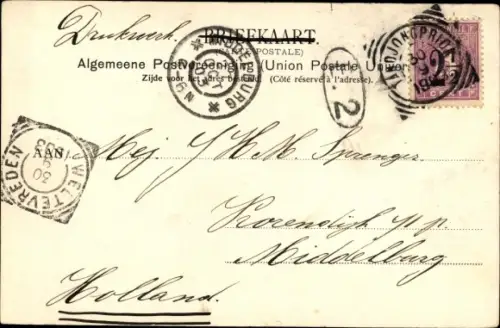 Drukwerk.
BRIEFKAART.
(CARTE POSTALE)
Algemeene Postvereeniging (Union Postale Univer
Zijde voor het adres bestemd. (Côté réservé à l'adresse).
MIDDELBURG
TANDJONGPRIOK
2 1/2
2
AAN
WELTEVREDEN
Mej. J H M Sprenger.
Korendijk p.p.
Middelburg
Holland.